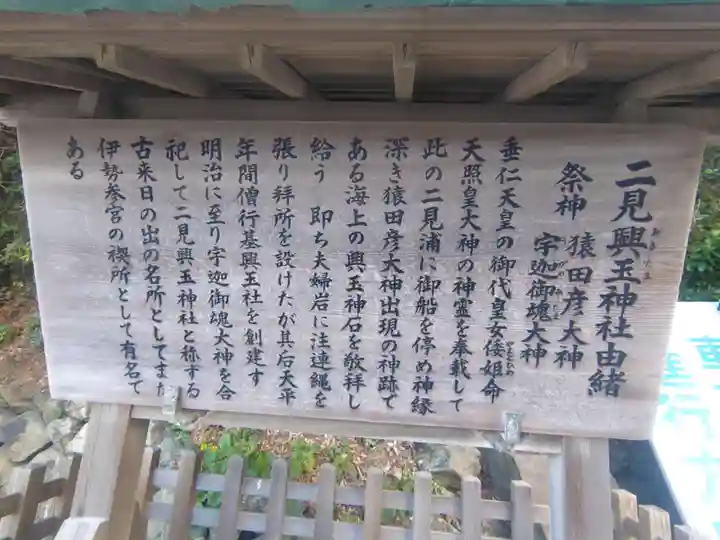 二見興玉神社由緒
祭神 猿田彦大神
宇迦御魂大神
垂仁天皇の御代皇女倭姫命
天照皇大神の神霊を奉載して
此の二見浦に御船を停め神縁
深き猿田彦大神出現の神跡で
ある海上の興玉神石を敬拝し
給う 即ち夫婦岩に注連縄を
張り拝所を設けたが其后天平
年間僧行基興玉社を創建す
明治に至り宇迦御魂大神を合
祀して二見興玉神社と称する
古来日の出の名所としてまた
伊勢参宮の禊所として有名で
ある